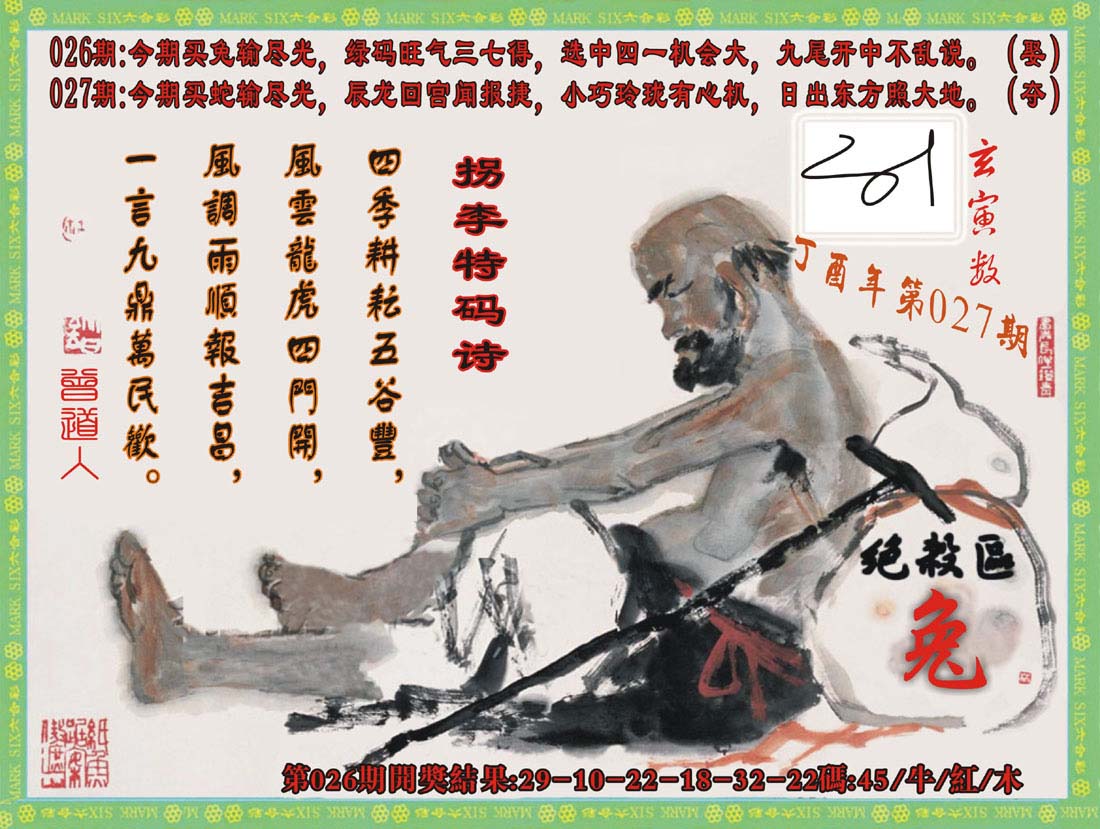 MARK SIX六合彩
026期:今期买兔输尽光，绿码旺气三七得，选中四一机会大，九尾开中不乱说。(娶)
027期:今期买蛇输尽光，辰龙回宫闻报捷，小巧玲珑有心机，日出东方照大地。(夺)
玄寅数
丁酉年第027期
拐李特码诗
四季耕耘五谷豐，
風雲龍虎四門開，
風調雨順報吉昌，
一言九鼎萬民歡。
曾道人
绝殺區
兔
第026期開獎結果:29-10-22-18-32-22碼:45/牛/紅/木